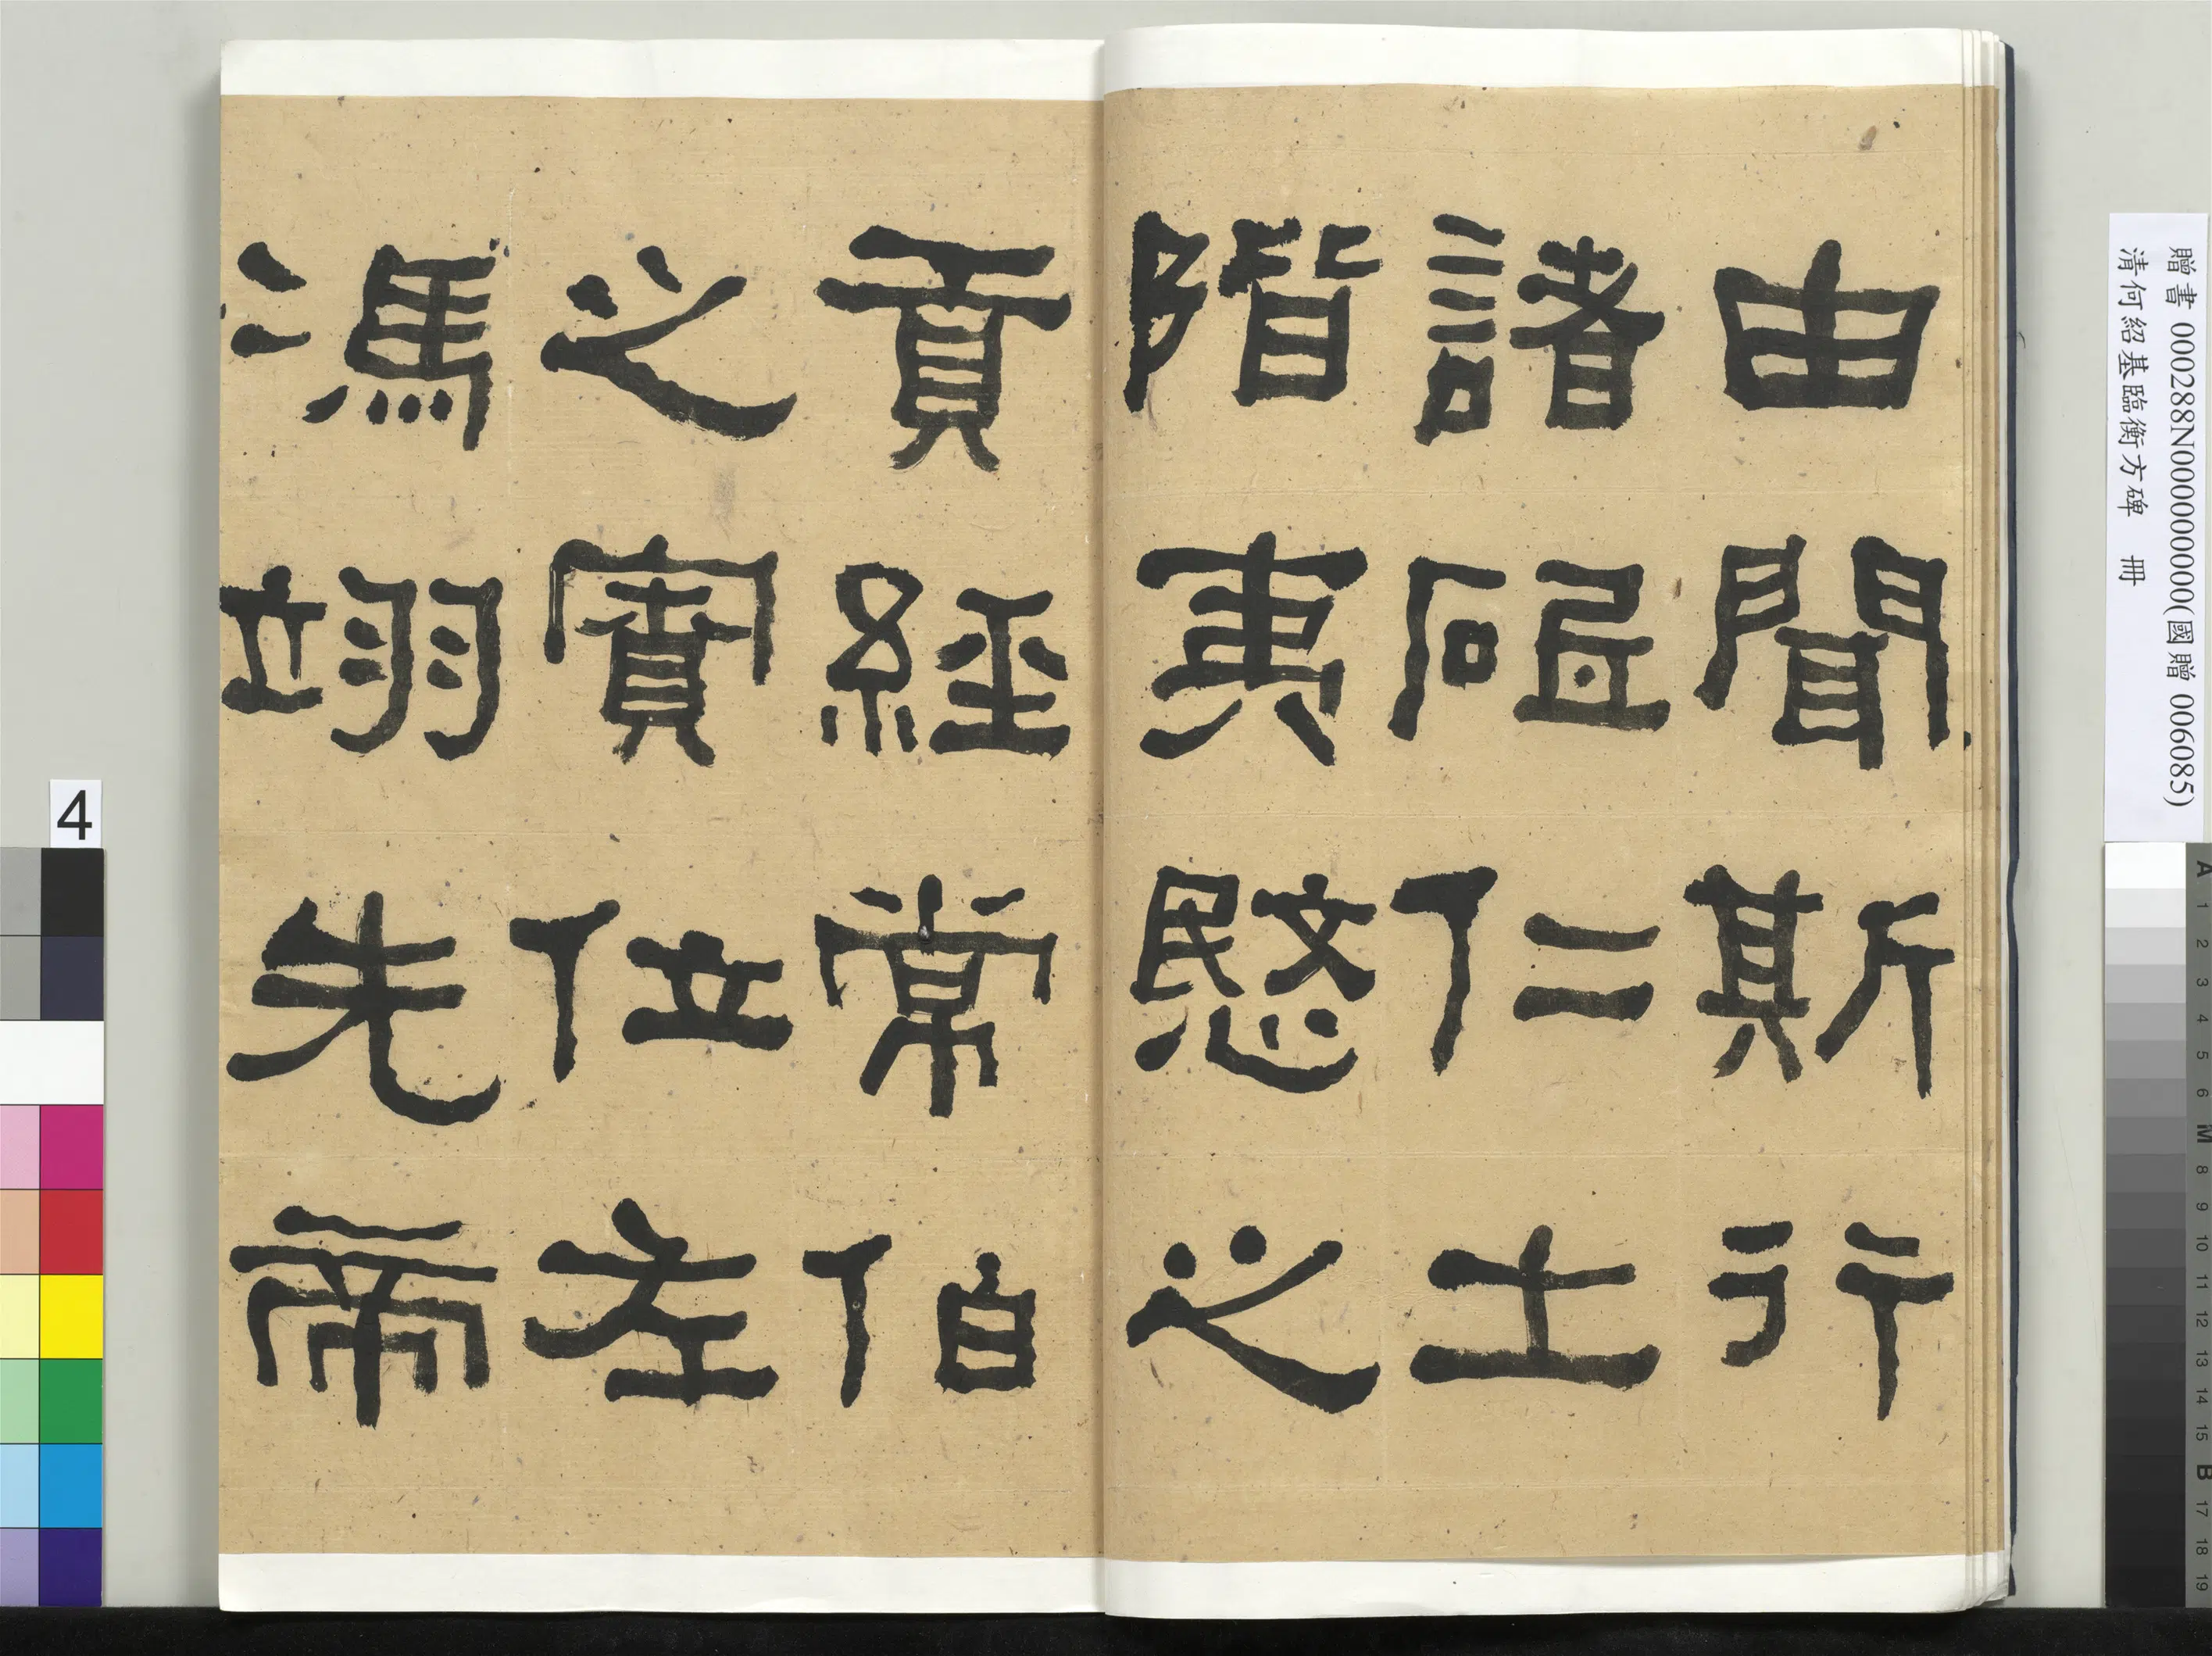 由聞斯行
諸砥仁土
階夷愍之
貢經常伯
之實位左
馮翊先帝
贈書 000288N000000000(國贈 006085)
清何紹基臨衡方碑 冊
4
A 1 2 3 4 5 6 M 8 9 10 11 12 13 14 15 B 17 18 19